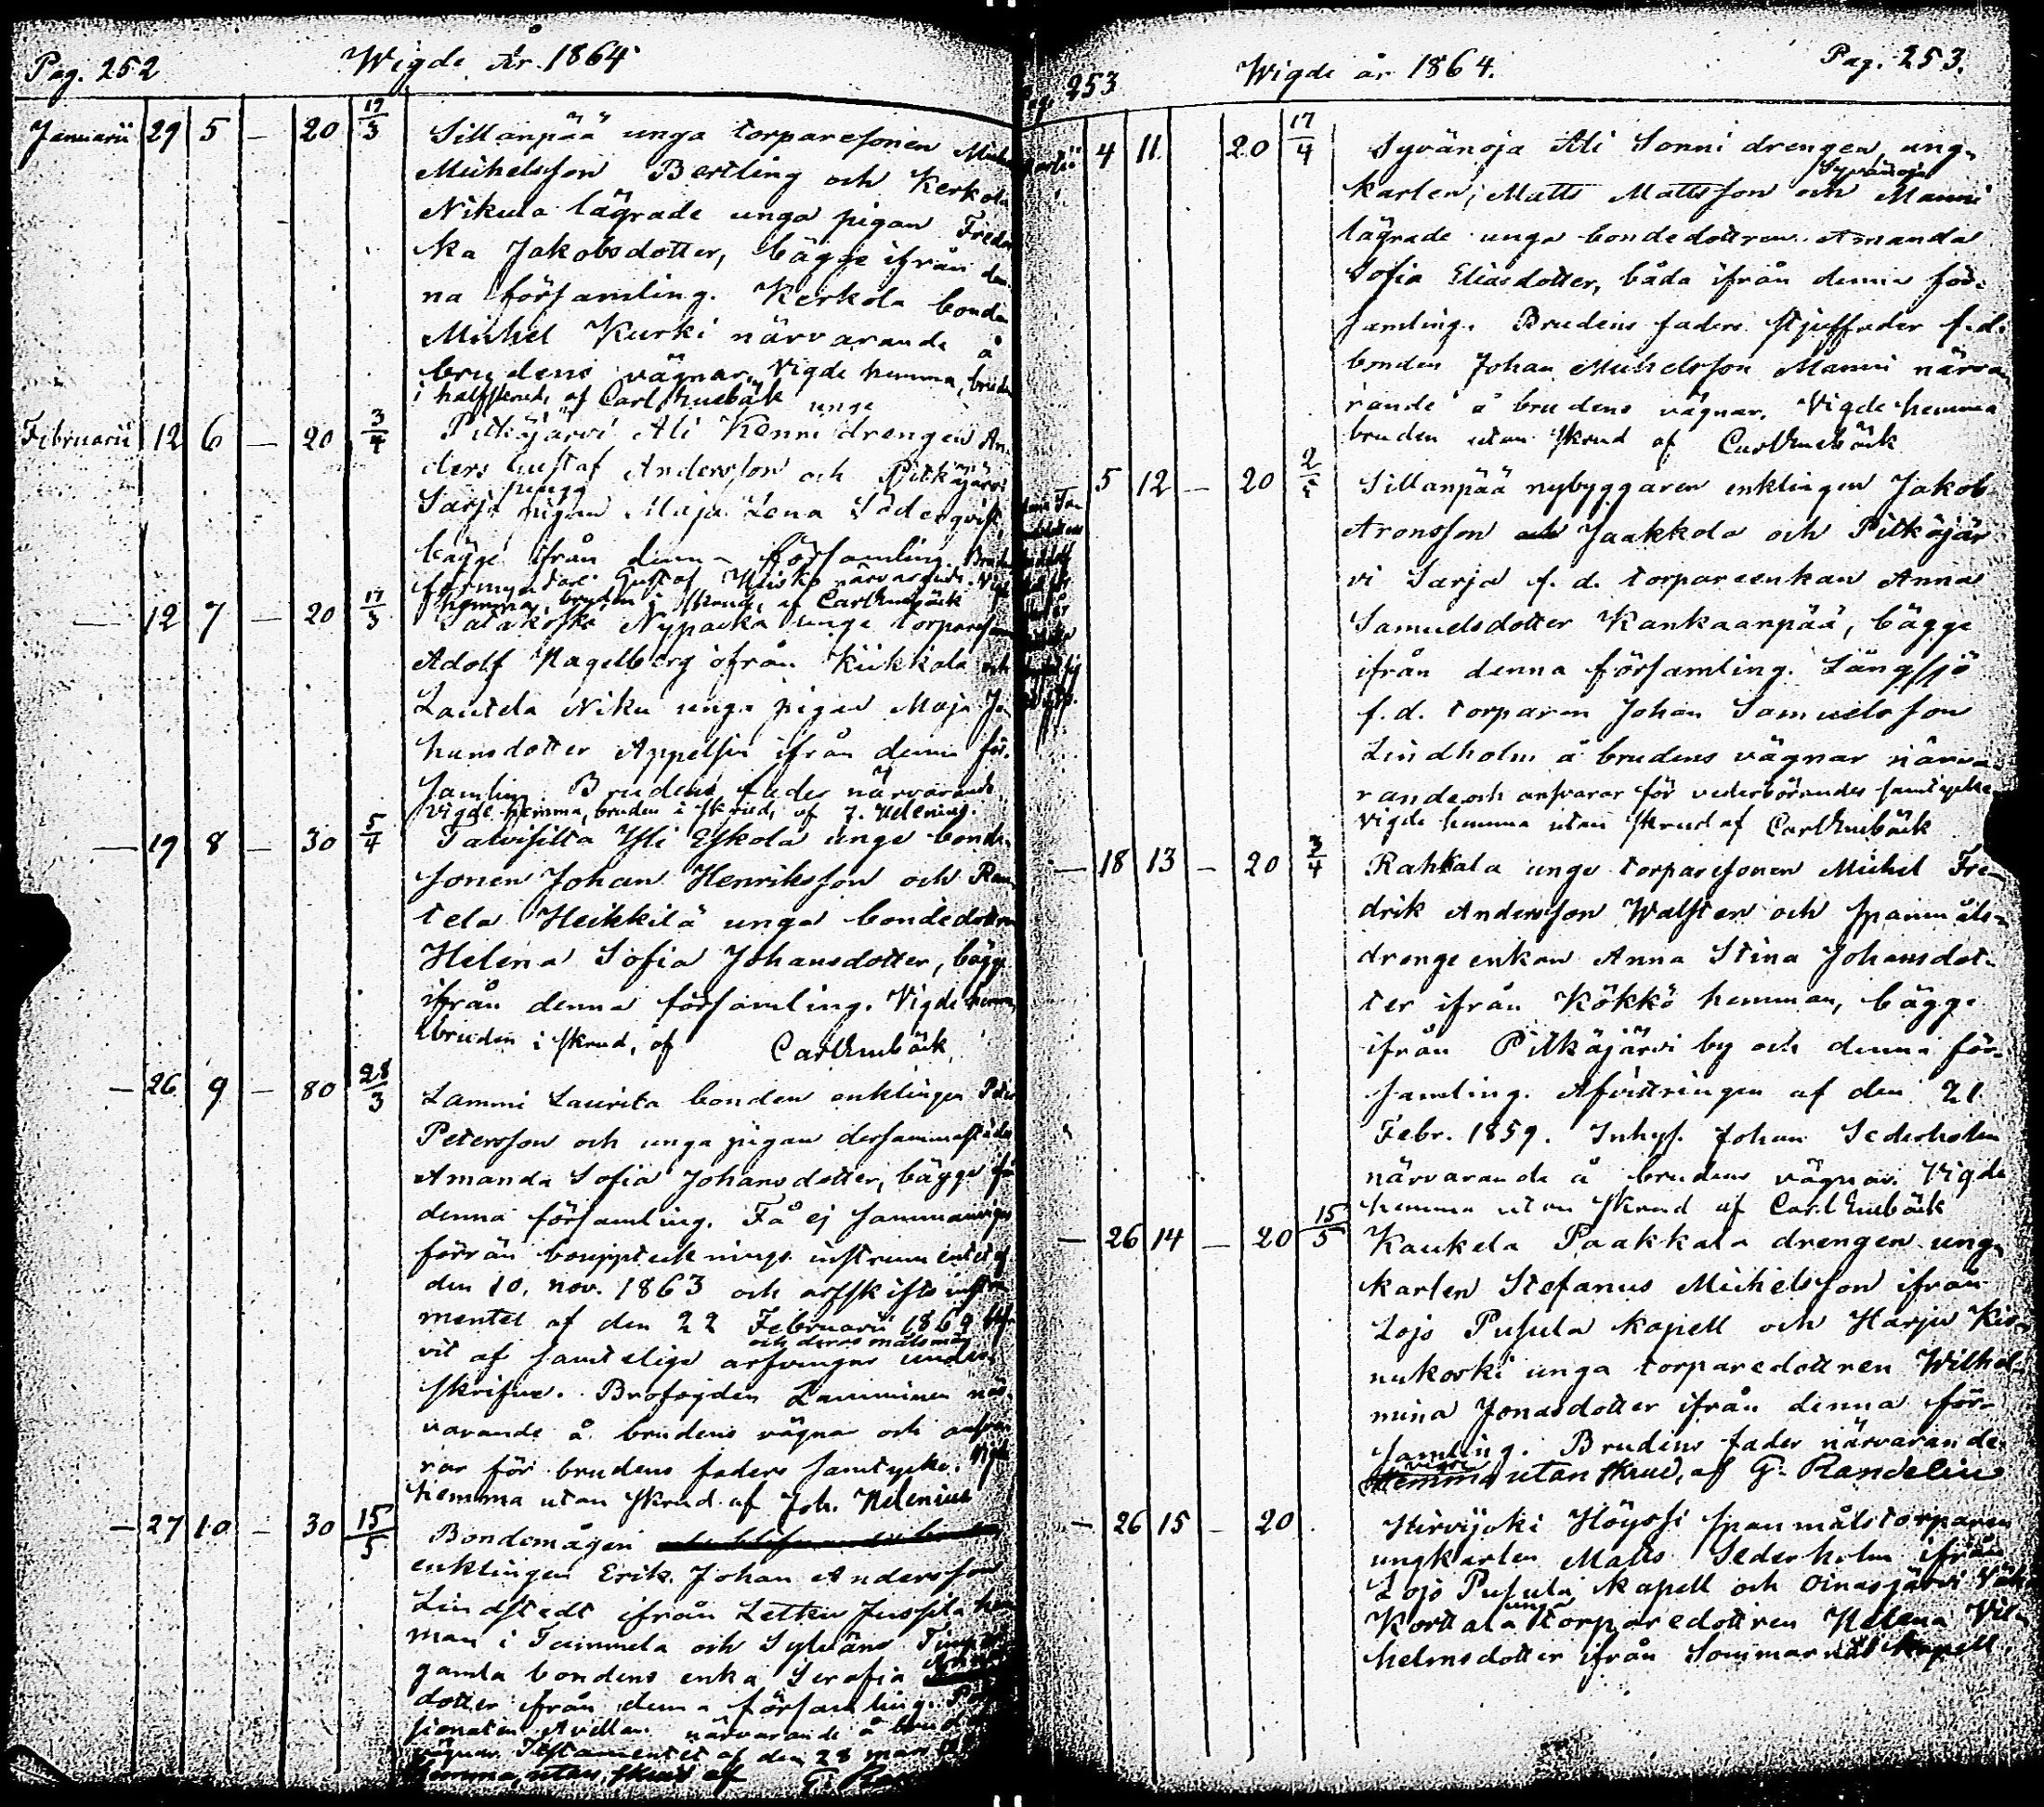 Pag. 252 Wigde År 1864
Januarii 29 5 — 20 17/3 Sillanpää unga torparesonen
Michelsson Bertling och Kerkola
Nikula lägrade unga pigan Fredri
ka Jakobsdotter, bägge ifrån den
na församling. Kerkola bonde
Michel Kurki närvarande å
brudens vägnar. Vigde hemma, bruden
i halfskrud, af Carl Enebäck
Februarii 12 6 — 20 3/4 Pitkäjärvi Ali Kenni unge drengen An
ders Gustaf Andersson och Pitkäjärvi
Sarja pigan Maja Lena Söderqvist,
bägge ifrån denna församling.
förmyndare Gustaf Heiskä närvarande.
hemma, bruden i skrud, af Carl Enebäck
— 12 7 — 20 17/3 Satakoski Nypacka unge torparesonen
Adolf Nagelberg ifrån Kiikkala och
Lautela Niku unga pigan Maja Jo
hansdotter Appelsin ifrån denna för
samling. Brudens fader närvarande
vigde hemma, bruden i skrud, af J. Helenius.
— 19 8 — 30 5/4 Talvisilta Yli Eskola unge bonde
sonen Johan Henriksson och Ran
tela Heikkilä unga bondedottren
Helena Sofia Johansdotter, bägge
ifrån denna församling. Vigde hemma
bruden i skrud, af Carl Enebäck
— 26 9 — 80 28/3 Lammi Laurita bonden enklingen Peter
Petersson och unga pigan dersammastädes
Amanda Sofia Johansdotter, bägge från
denna församling. Få ej sammanvigas
förrän bouppteckningsinstrumentet af
den 10. nov. 1863 och arfskiftsinstru
mentet af den 22 Februarii 1864
vit af samtelige arfvingar och deras målsmän under
skrifne. Brofogden Lamminen när
varande å brudens vägnar och ansva
rar för brudens faders samtycke. Vigde
hemma utan skrud af Joh. Helenius
— 27 10 — 30 15/5 Bondemågen
enklingen Erik Johan Andersson
Lindstedt ifrån Letku Jussila hem
man i Tammela och Sylväns
gamla bondens enka Serafia
dotter ifrån denna församling.
närvarande å brudens
vägnar. Testamentet af den 28 mars
hemma, utan skrud af G. R
Pag. 253 Wigde år 1864. Pag. 253.
Martii 4 11 20 17/4 Syvänoja Ali Sonni drengen, ung-
karlen, Matts Mattsson och Syvänoja Manni
lägrade unga bondedottren Amanda
Sofia Eliasdotter, båda ifrån denna för-
samling. Brudens faders stjuffader f.d.
bonden Johan Michelsson Manni närva
rande å brudens vägnar. Vigde hemma
bruden utan skrud af Carl Enebäck
— 5 12 — 20 Sillanpää nybyggaren enklingen Jakob
Aronsson Jaakkola och Pitkäjär
vi Sarja f. d. torpareenkan Anna
Samuelsdotter Kankaanpää, bägge
ifrån denna församling. Långsjö
f. d. torparen Johan Samuelsson
Lindholm å brudens vägnar närva
rande och ansvarar för vederbörandes samtycke
Vigde hemma utan skrud af Carl Enebäck
— 18 13 — 20 3/4 Rahkala unge torparesonen Michel Fre-
drik Andersson Walsten och spanmåls-
drengeenkan Anna Stina Johansdot-
ter ifrån Kökkö hemman, bägge
ifrån Pitkäjärvi by och denna för-
samling. Afvittringen af den 21
Febr. 1859. Inhys. Johan Sederholm
närvarande å brudens vägnar. Vigde
hemma utan skrud af Carl Enebäck
— 26 14 — 20 15/5 Kaukela Paakkala drengen ung-
karlen Stefanus Michelsson ifrån
Lojo Pusula kapell och Harju Kin-
nukoski unga torparedottren Wilhel-
mina Jonasdotter ifrån denna för-
samling. Brudens fader närvarande.
Vigde utan skrud, af G. Randelin
— 26 15 — 20 Hirvijoki Höyssi spanmålstorparen
ungkarlen Matts Sederholm ifrån
Lojo Pusula kapell och Oinasjärvi
Korttala unga torparedottren Helena Vil-
helmsdotter ifrån Sommarnäs kapell.